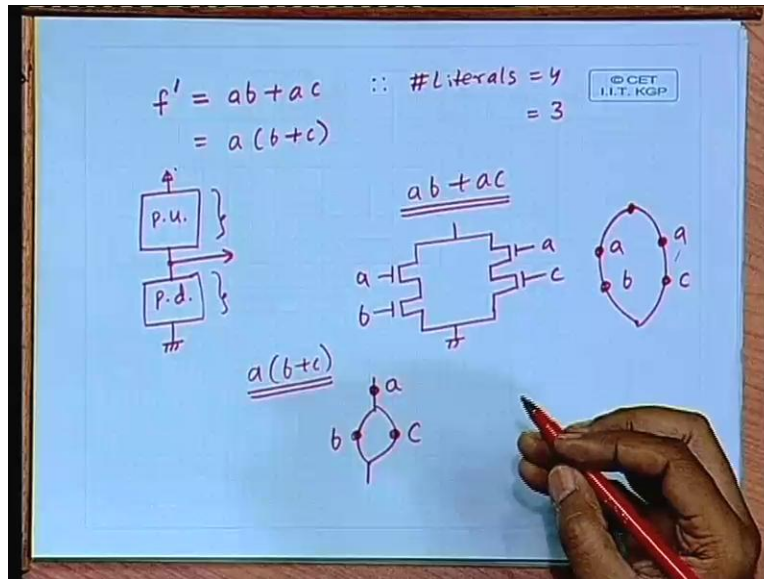 f' = ab + ac ∷ #Literals = 4
= a (b+c) = 3
© CET
I.I.T. KGP
p.u.
p.d.
ab + ac
a
b
a
c
a
b
a
c
a(b+c)
a
b
c